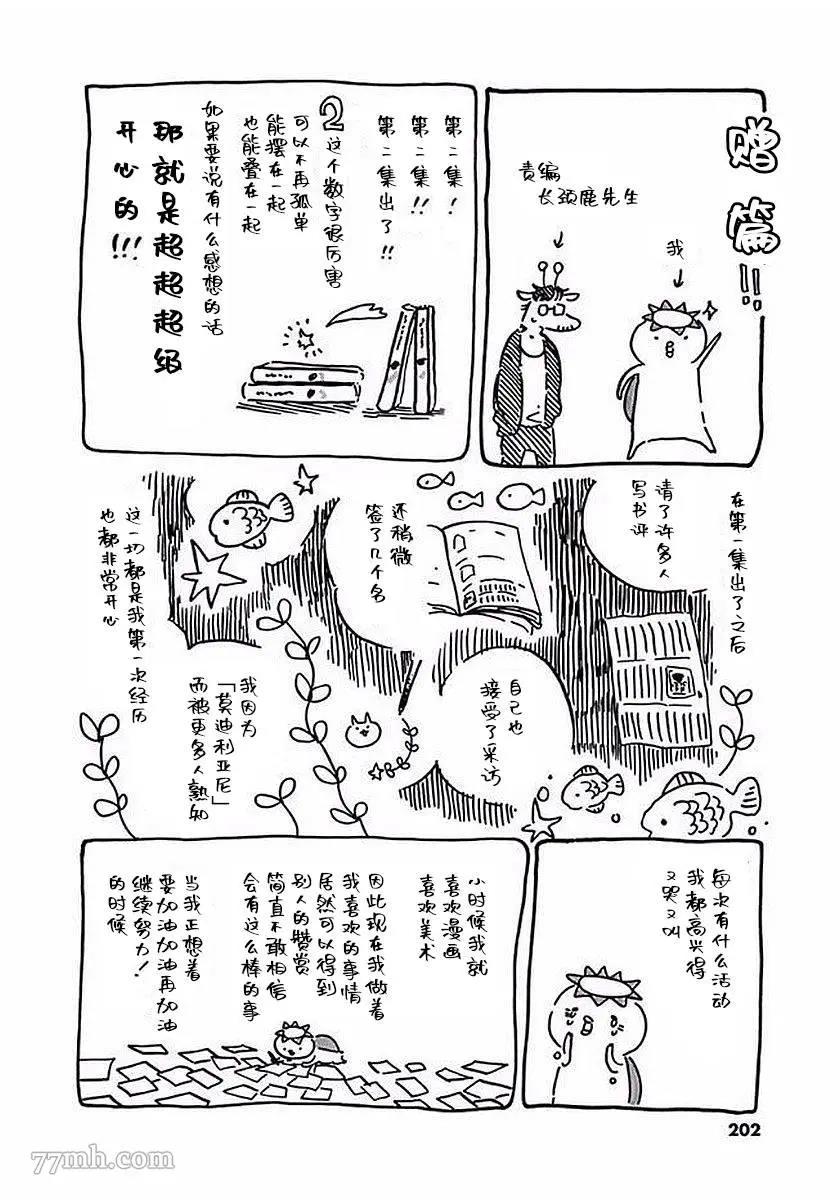 赠篇!!
我
责编
长颈鹿先生
第二集!
第二集!!
第二集出了!!
2这个数字很厉害
可以不再孤单
能摆在一起
也能叠在一起
如果要说有什么感想的话
那就是超超超级
开心的!!!
在第一集出了之后
请了许多人
写书评
自己也
接受了采访
还稍微
签了几千名
我因为
「莫迪利亚尼」
而被更多人熟知
这一切都是我第一次经历
也都非常开心
每次有什么活动
我都高兴得
又哭又叫
小时候我就
喜欢漫画
喜欢美术
因此现在我做着
我喜欢的事情
居然可以得到
别人的赞赏
简直不敢相信
会有这么棒的事
当我正想着
要加油加油再加油
继续努力!
的时候
202
77mh.com